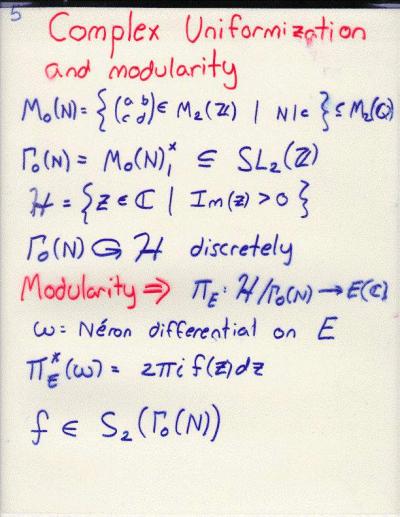 5
Complex Uniformization
and modularity
M₀(N) = {(a b c d) ∈ M₂(ℤ) | N|c} ⊆ M₂(ℚ)
Γ₀(N) = M₀(N)₁ˣ ⊆ SL₂(ℤ)
ℋ = {z ∈ ℂ | Im(z) > 0}
Γ₀(N) ↻ ℋ discretely
Modularity ⇒ π_E : ℋ/Γ₀(N) → E(ℂ)
ω = Néron differential on E
π_E^*(ω) = 2πi f(z)dz
f ∈ S₂(Γ₀(N))